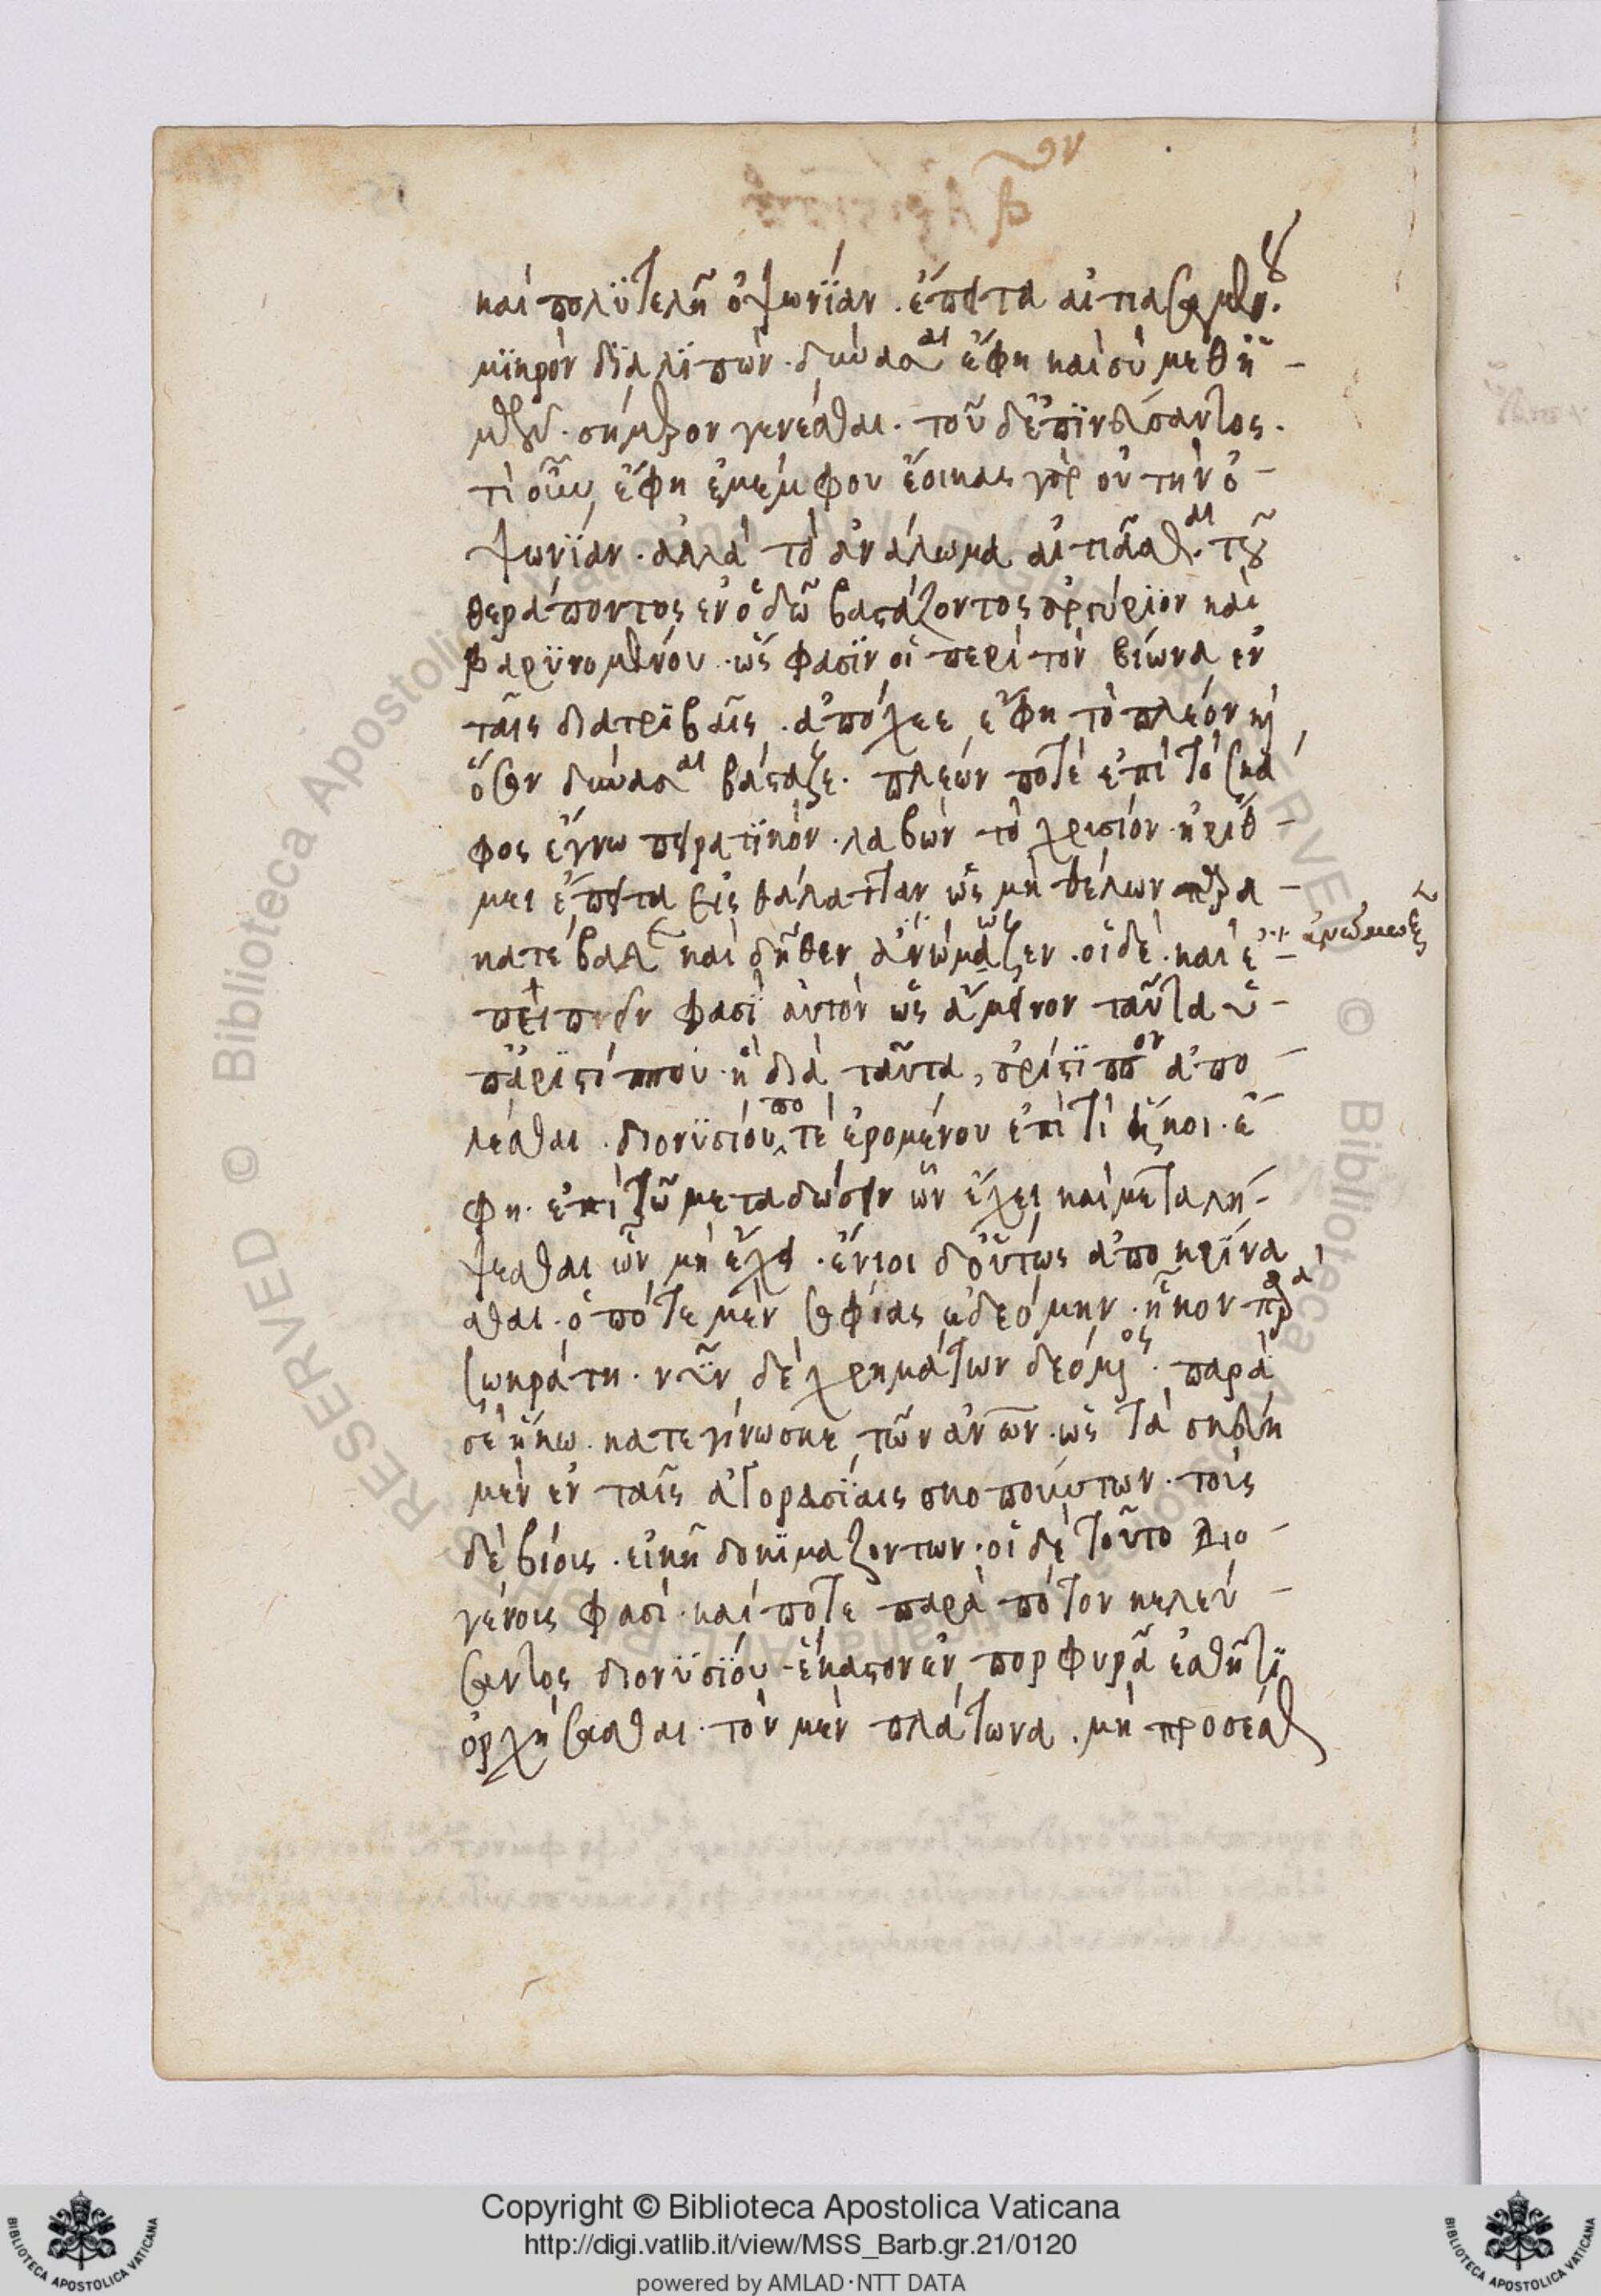 καὶ πολϋτελῆ ὀψωνΐαν. ἔπειτα αἰτιασαμένου.
μϊκρὸν δϊαλϊπὼν. δύνασαι ἔφη καὶ σὺ μεθ' ἡ-
μῶν σήμερον γενέσθαι. τοῦ δ' ἐπϊνεύσαντος.
τί οὖν, ἔφη ἐμέμφου ἔοικας γὰρ οὐ τὴν ὀ-
ψωνΐαν. ἀλλὰ τὸ ἀνάλωμα αἰτιᾶσθαι. τοῦ
θεράποντος ἐν ὁδῶ βαστάζοντος ἀργύριον καὶ
βαρϋνομένου. ὥς φασϊν οἱ περὶ τὸν βίωνα ἐν
ταῖς διατρϊβαῖς. ἀπόχεε, ἔφη τὸ πλέον καὶ
ὅσον δύνασαι βάσταζε. πλέων ποτὲ ἐπεὶ τὸ σκά
φος ἔγνω πειρατϊκὸν. λαβὼν τὸ χρυσίον. ἠρίθ-
μει ἔπειτα εἰς θάλατταν ὡς μὴ θέλων παρα-
κατέβαλε καὶ δῆθεν ἀνώμωζεν. οἱ δὲ. καὶ ἐ-
ἀνώμωξεν
πειπεῖν φασϊ αὐτὸν ὡς ἄμεινον ταῦτα ὑ-
π' ἀρϊστίππου. ἢ διὰ ταῦτα, ἀρίστϊππον ἀπο-
λέσθαι. διονϋσίου ποτὲ ἐρομένου ἐπὶ τί ἥκοι. ἔ-
φη. ἐπὶ τῶ μεταδώσειν ὧν ἔχει καὶ μεταλή-
ψεσθαι ὧν μὴ ἔχει. ἔνιοι δ' οὕτως ἀποκρίνα
σθαι. ὁπότε μὲν σοφίας ἐδεόμην. ἧκον παρὰ
σωκράτη. νῦν δὲ χρημάτων δεόμενος. παρὰ
σὲ ἥκω. κατεγίνωσκε τῶν ἀνων. ὡς τὰ σκεύη
μὲν ἐν ταῖς ἀγορασΐαις σκοπούντων. τοὺς
δὲ βίους. εἰκῆ δοκϊμαζόντων. οἱ δὲ τοῦτο Διο-
γένους φασὶ. καί ποτε παρὰ πότον κελεύ-
σαντος διονϋσϊου. ἕκαστον ἐν πορφυρᾶ ἐσθῆτϊ
ὀρχήσασθαι. τὸν μὲν πλάτωνα. μὴ προσέσθαι
Copyright © Biblioteca Apostolica Vaticana
http://digi.vatlib.it/view/MSS_Barb.gr.21/0120
powered by AMLAD·NTT DATA